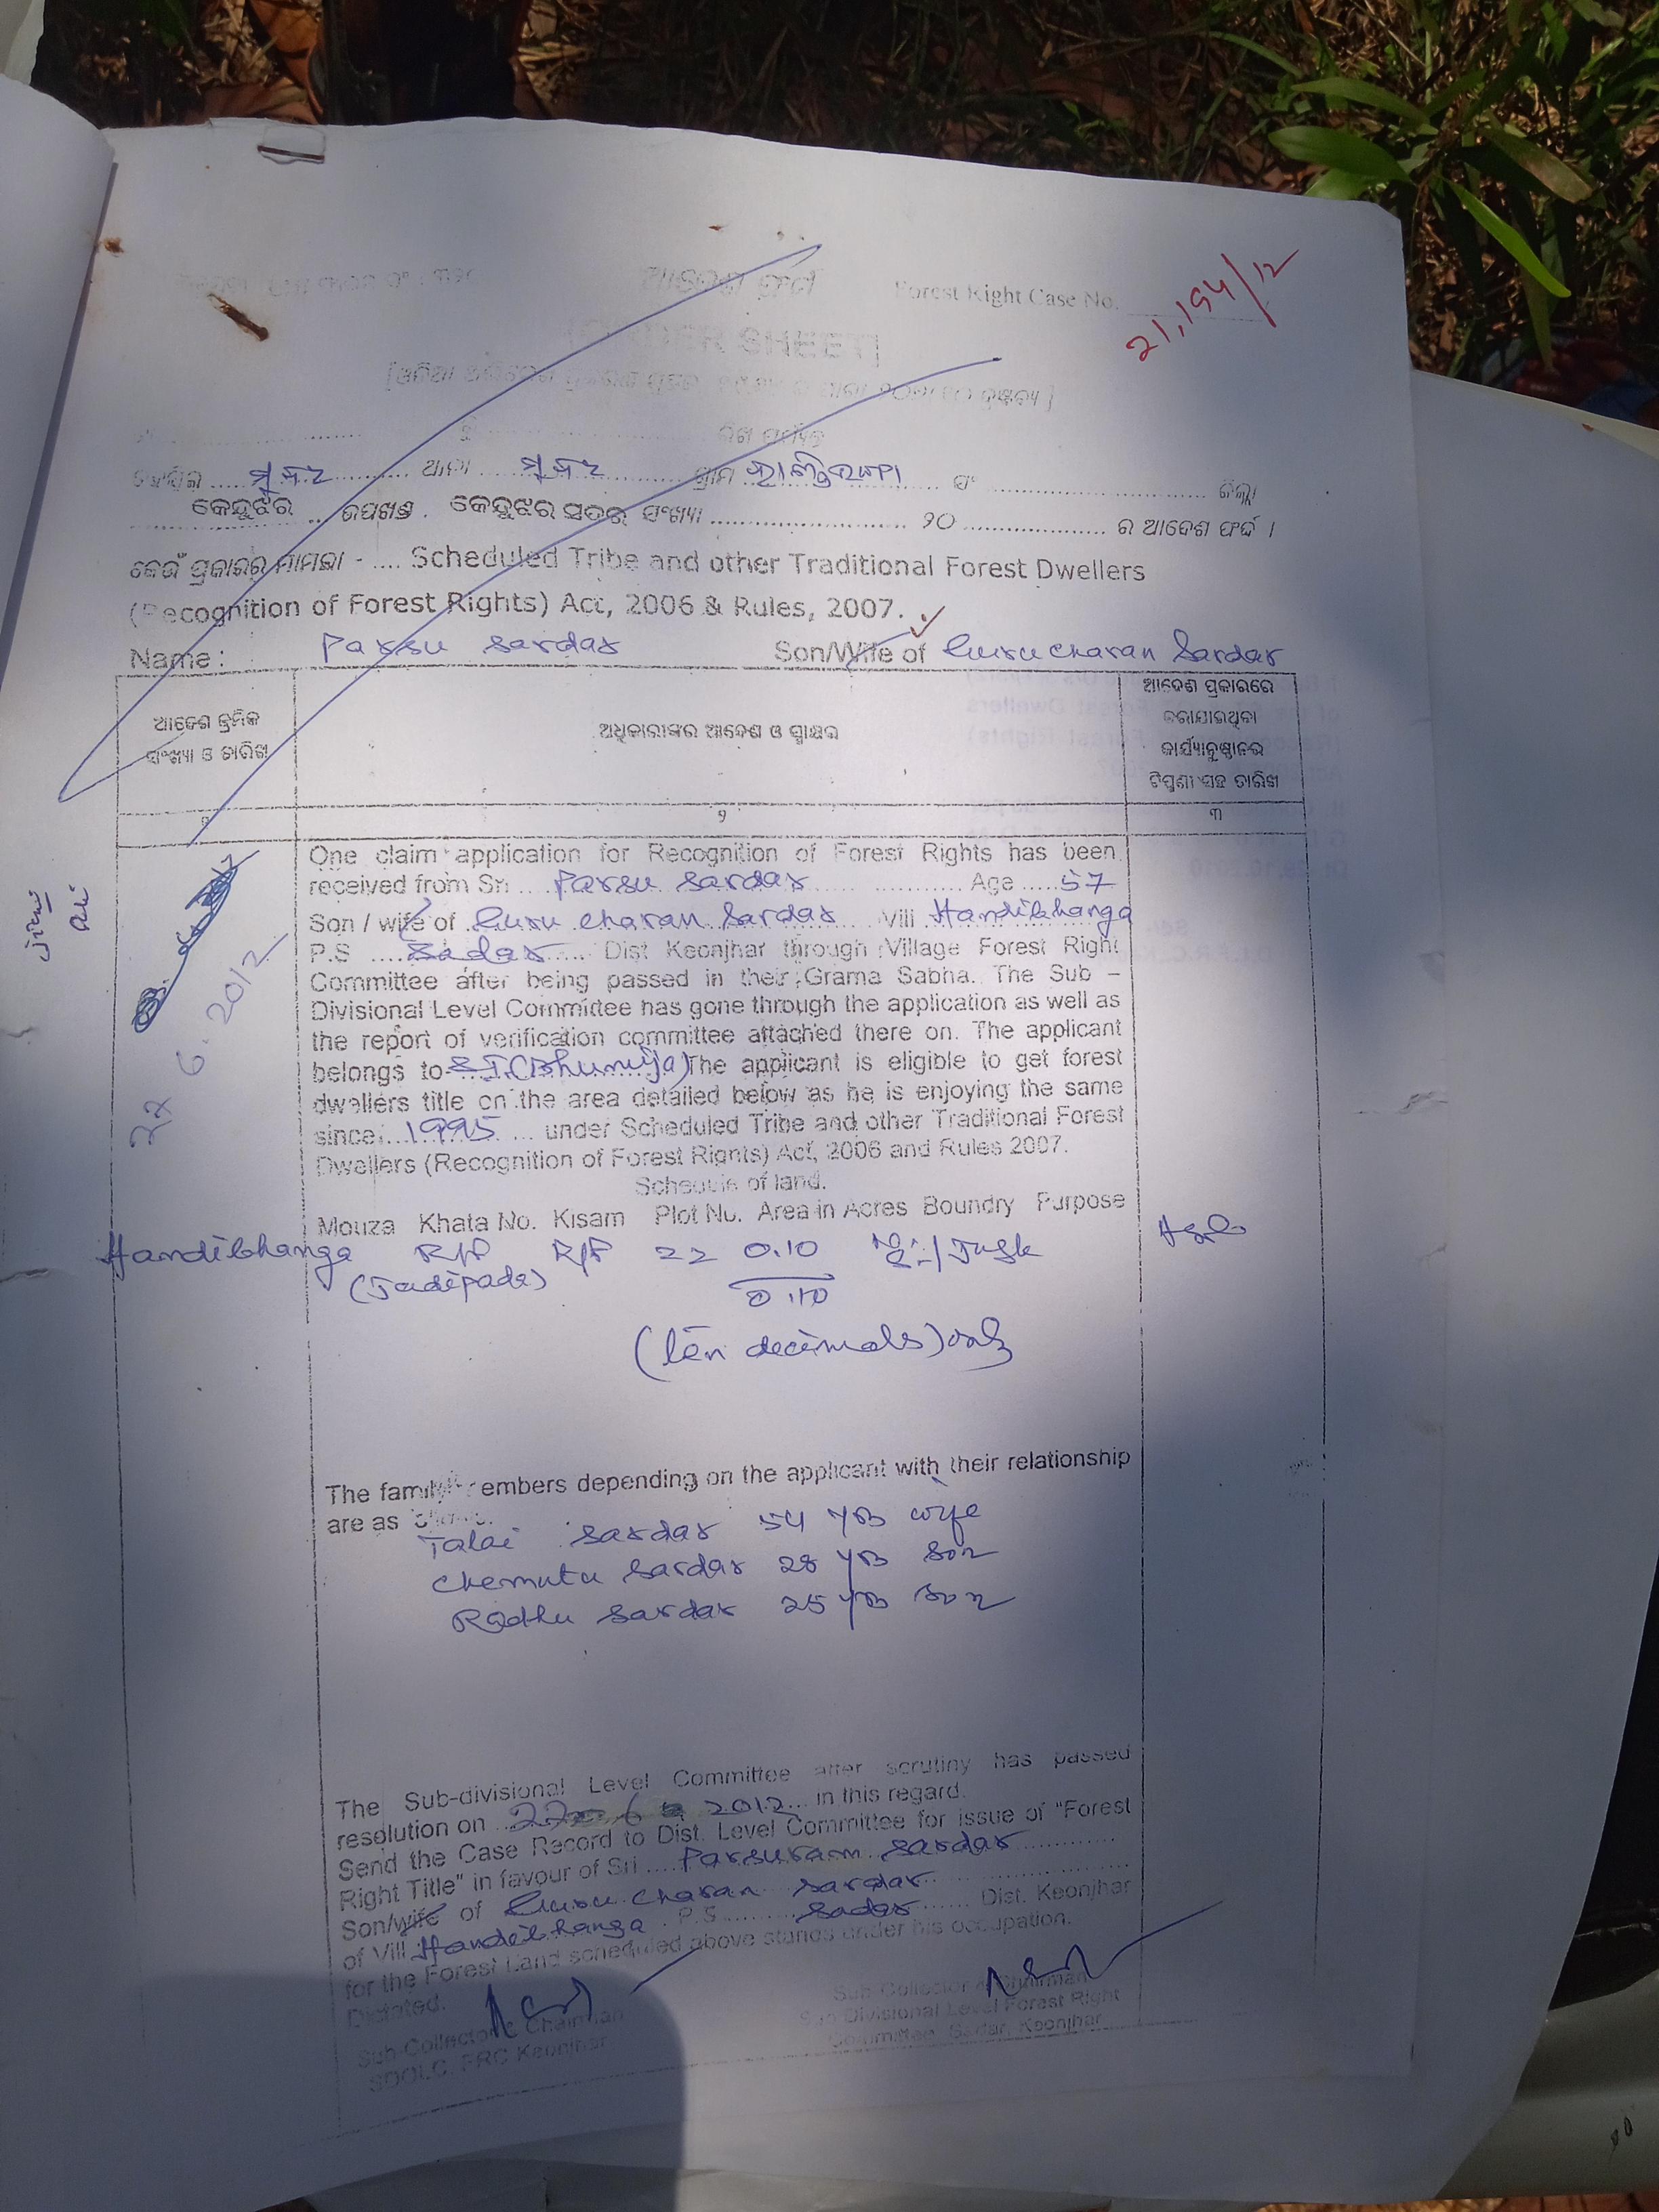 ଆଦେଶ ଫର୍ଦ୍ଦ
Forest Right Case No.
21,194/12
[ORDER SHEET]
ତହସିଲ ..... ସଦର ..... ଥାନା ..... ସଦର ..... ଗ୍ରାମ ହାଣ୍ଡିଭଙ୍ଗା ..... ସଂ ..... ଜିଲ୍ଲା
କେନ୍ଦୁଝର ... ଉପଖଣ୍ଡ . କେନ୍ଦୁଝର ସଦର ସଂଖ୍ୟା ..... ୨୦ ..... ର ଆଦେଶ ଫର୍ଦ୍ଦ ।
କେଉଁ ପ୍ରକାରର ମାମଲା - .... Scheduled Tribe and other Traditional Forest Dwellers
(Recognition of Forest Rights) Act, 2006 & Rules, 2007.
Name : Parsu Sardar Son/Wife of Guru charan Sardar
ଆଦେଶ କ୍ରମିକ
ସଂଖ୍ୟା ଓ ତାରିଖ
ଅଧିକାରୀଙ୍କର ଆଦେଶ ଓ ସ୍ୱାକ୍ଷର
ଆଦେଶ ପ୍ରକାରରେ
କରାଯାଇଥିବା
କାର୍ଯ୍ୟାନୁଷ୍ଠାନର
ଟିପ୍ପଣୀ ସହ ତାରିଖ
୧ ୨ ୩
22.6.2012
One claim application for Recognition of Forest Rights has been
received from Sri .... Parsu Sardar ..... Age ..... 57
Son / wife of Guru charan Sardar Vill Handibhanga
P.S .... Sadar .... Dist Keonjhar through Village Forest Right
Committee after being passed in their Grama Sabha. The Sub –
Divisional Level Committee has gone through the application as well as
the report of verification committee attached there on. The applicant
belongs to S.T.(Bhumija) The applicant is eligible to get forest
dwellers title on the area detailed below as he is enjoying the same
since .... 1995 .... under Scheduled Tribe and other Traditional Forest
Dwellers (Recognition of Forest Rights) Act, 2006 and Rules 2007.
Schedule of land.
Mouza Khata No. Kisam Plot No. Area in Acres Boundry Purpose
Handibhanga R/F R/F 22 0.10
(Jadipada) 0.10
(Ten decimals) only
The family members depending on the applicant with their relationship
are as follows.
Talai Sardar 54 yrs wife
Chemutu Sardar 28 yrs Son
Radhu Sardar 25 yrs Son
The Sub-divisional Level Committee after scrutiny has passed
resolution on ... 22.6.2012 ... in this regard.
Send the Case Record to Dist. Level Committee for issue of "Forest
Right Title" in favour of Sri .... Parsuram Sardar ..........
Son/wife of Guru charan Sardar ..........
of Vill Handibhanga . P.S ..... Sadar ..... Dist. Keonjhar
for the Forest Land scheduled above stands under his occupation.
Dictated.
Sub-Collector & Chairman
SDOLC, FRC Keonjhar
Sub-Collector & Chairman
Sub Divisional Level Forest Right
Committee, Sadar, Keonjhar